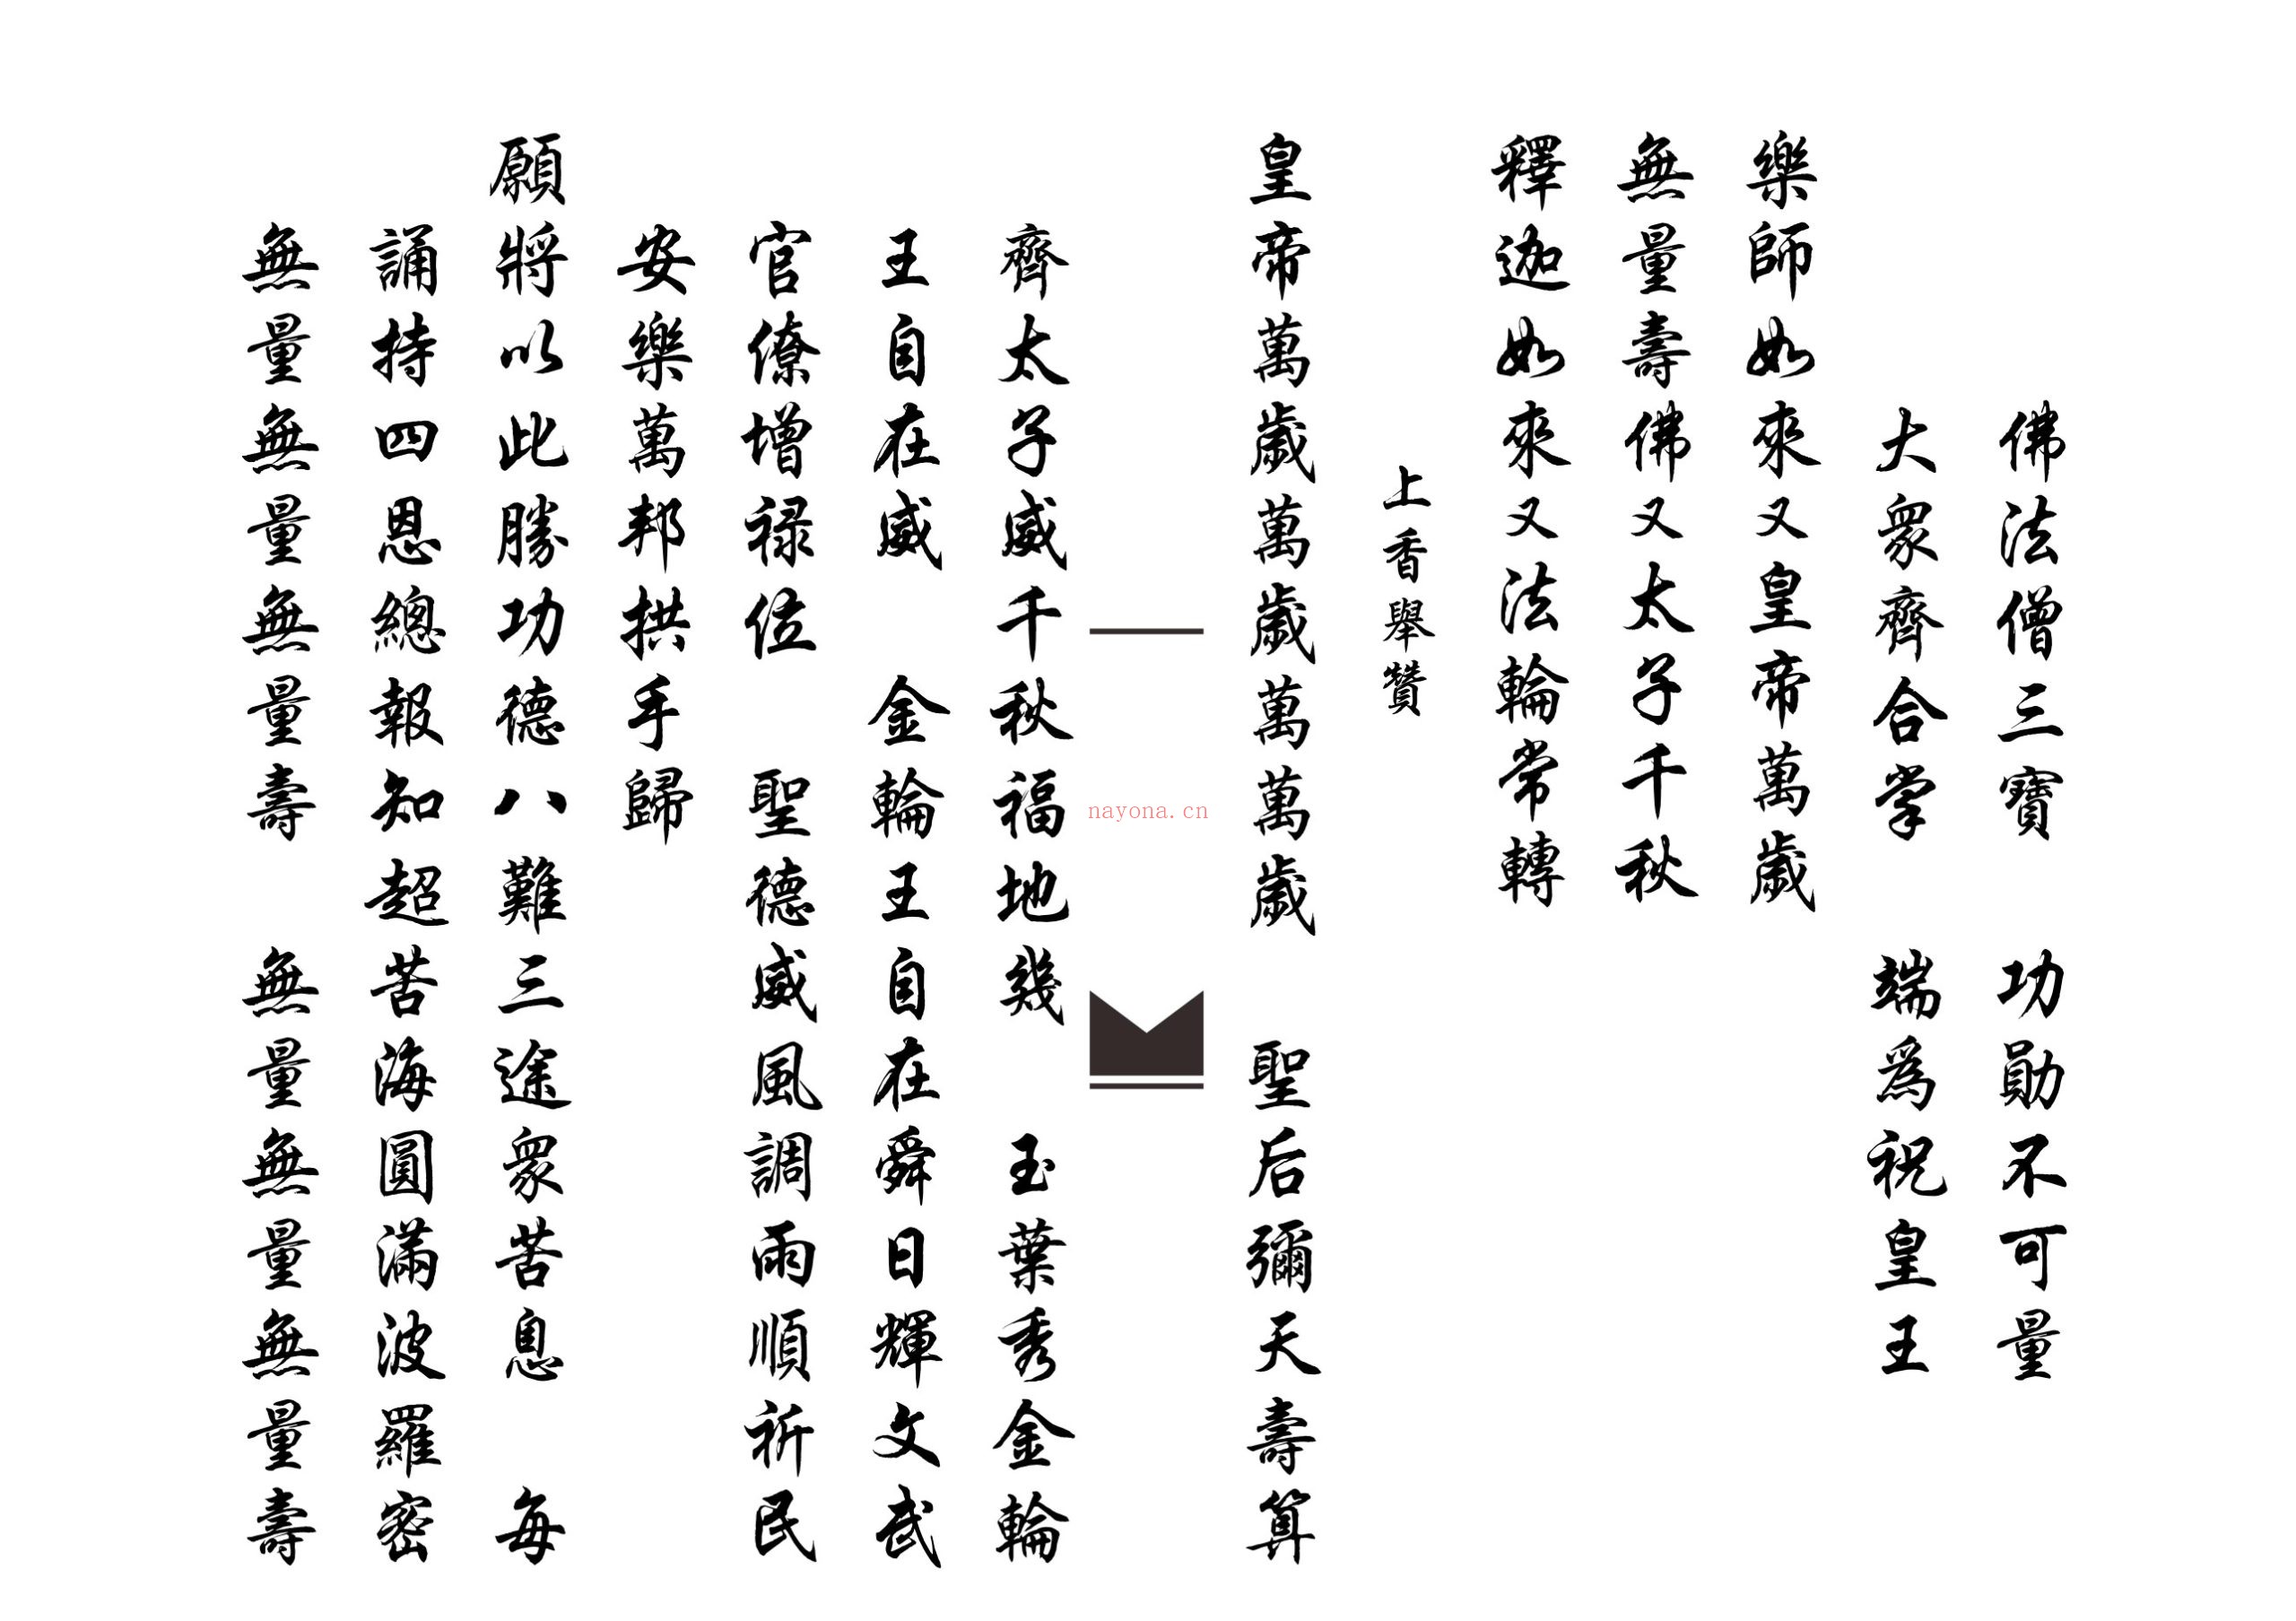 佛法僧三寶　功勛不可量
大衆齊合掌　端爲祝皇王
樂師如來又皇帝萬歲
無量壽佛又太子千秋
釋迦如來又法輪常轉
上香舉讚
皇帝萬歲萬歲萬萬歲　聖后彌天壽算
齊太子威千秋福地幾　玉葉秀金輪
王自在威　金輪王自在舜日輝文武
官僚增禄位　聖德威風調雨順祈民
安樂萬邦拱手歸
願將以此勝功德八難三途衆苦息　每
誦持四恩總報知超苦海圓滿波羅密
無量無量無量壽　無量無量無量壽
nayona.cn